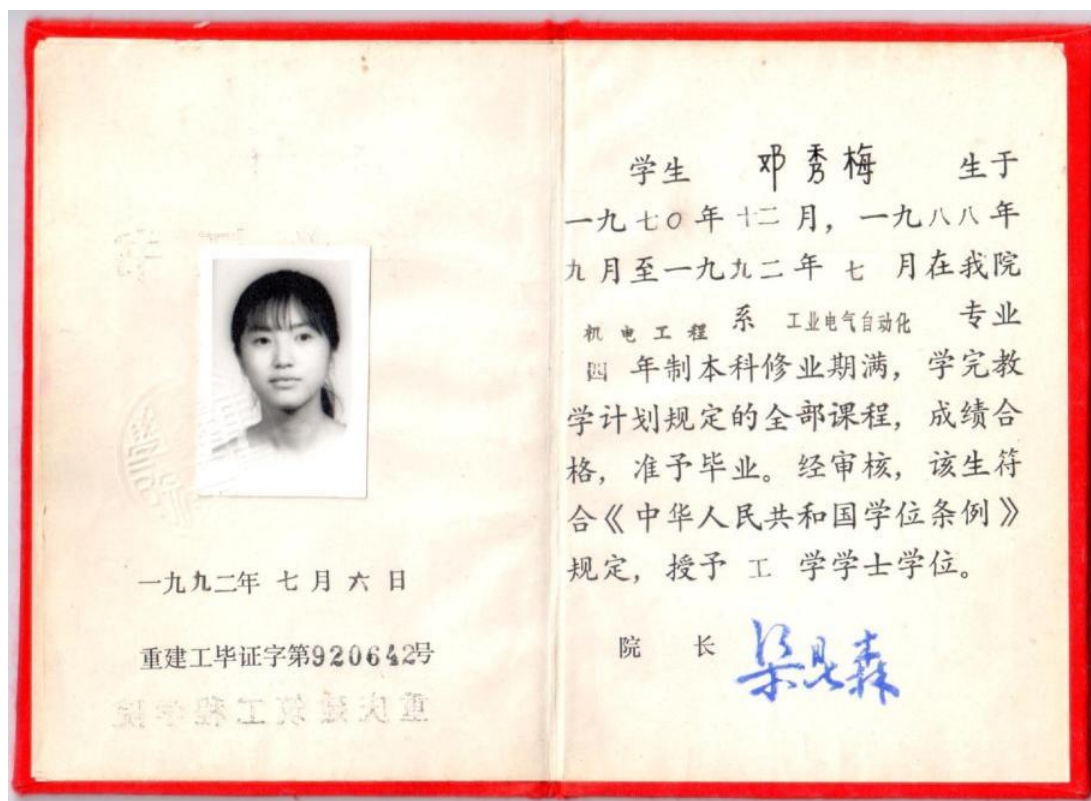 一九九二年 七 月 六 日
重建工毕证字第920642号
学生 邓秀梅 生于
一九七〇年十二月，一九八八年
九月至一九九二年 七 月在我院
机电工程 系 工业电气自动化 专业
四 年制本科修业期满，学完教
学计划规定的全部课程，成绩合
格，准予毕业。经审核，该生符
合《中华人民共和国学位条例》
规定，授予 工 学学士学位。
院 长